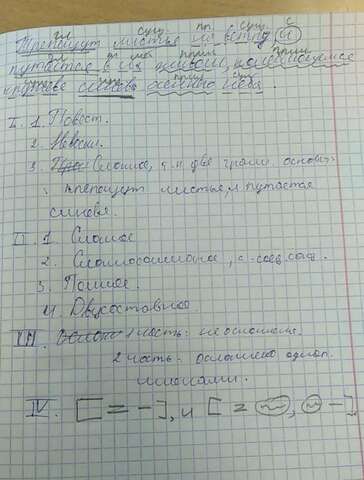 гл сущ пр. сущ. с
Трепещут листья на ветру, и
гл пр мест прил прил
путается в их живой, колеблющейся
сущ прил сущ
синева осеннего неба.
II. 1. Повест.
2. Невоскл.
3. Сложное, т.к две грам. основы:
трепещут листья, и путается
синева.
II. 1. Сложное
2. Сложносочинённое, с соед. союз.
3. Полное.
4. Двусоставное.
III. 1 часть: не осложнена.
2 часть: осложнено однор.
членами.
IV. [= -], и [=, -]